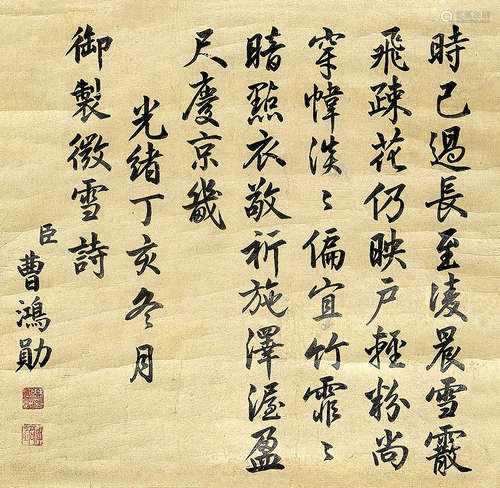 時已過長至淩晨雪霰
飛疎花仍映戶輕粉尚
穿幃淡〻偏宜竹霏〻
暗點衣敬祈施澤渥盈
尺慶京畿
光緒丁亥冬月
御製微雪詩
臣曹鴻勛